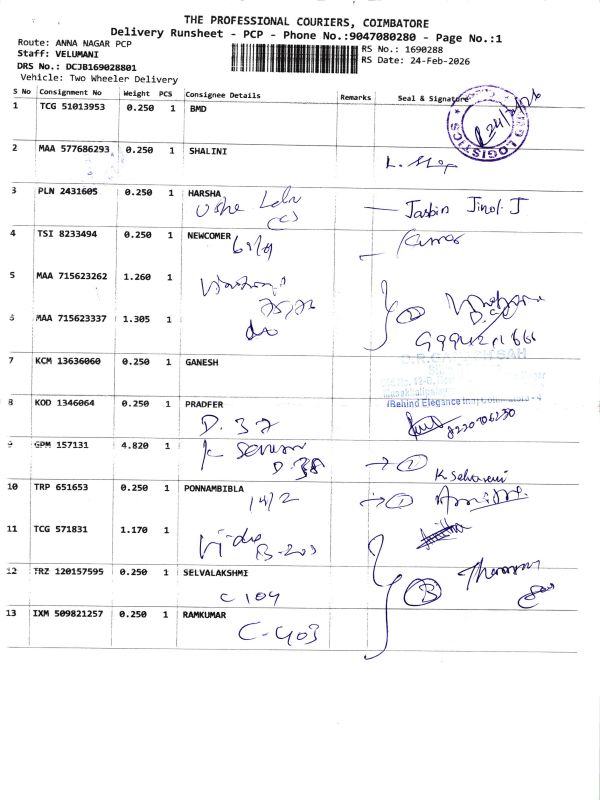 THE PROFESSIONAL COURIERS, COIMBATORE
Delivery Runsheet - PCP - Phone No.:9047080280 - Page No.:1
Route: ANNA NAGAR PCP
Staff: VELUMANI
DRS No.: DCJB169028801
Vehicle: Two Wheeler Delivery
RS No.: 1690288
RS Date: 24-Feb-2026
S No Consignment No Weight PCS Consignee Details Remarks Seal & Signature
1 TCG 51013953 0.250 1 BMD
LOGISTICS
2 MAA 577686293 0.250 1 SHALINI
3 PLN 2431605 0.250 1 HARSHA
Jasbin Jinol. J
4 TSI 8233494 0.250 1 NEWCOMER
Kumar
5 MAA 715623262 1.260 1
6 MAA 715623337 1.305 1
do
7 KCM 13636060 0.250 1 GANESH
(Behind Elegance Inn)
8 KOD 1346064 0.250 1 PRADFER
D. 37
8220706230
9 GPM 157131 4.820 1
D. 38
1
K Selvarani
10 TRP 651653 0.250 1 PONNAMBIBLA
14/2
1
11 TCG 571831 1.170 1
Vidya
B-203
12 TRZ 120157595 0.250 1 SELVALAKSHMI
C 104
3
13 IXM 509821257 0.250 1 RAMKUMAR
C-403